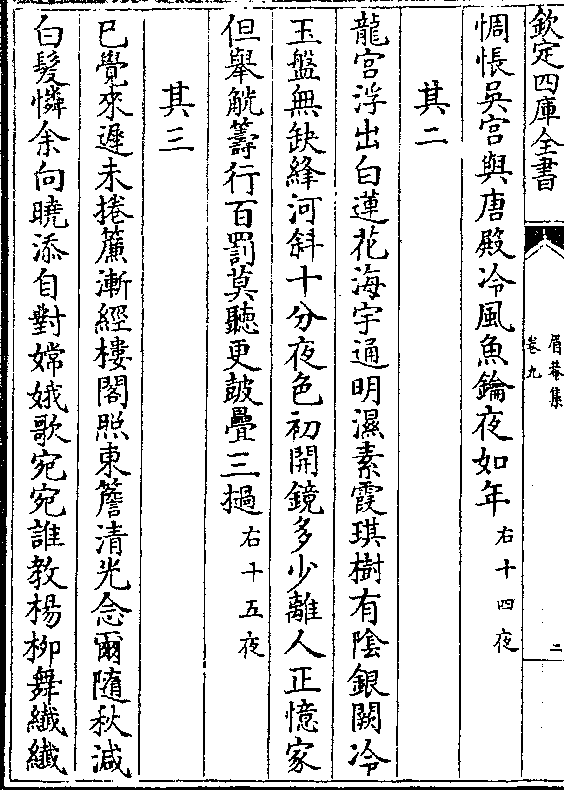 欽定四庫全書
眉菴集
卷九
二
惆悵吳宫與唐殿冷風魚鑰夜如年右十四夜
其二
龍宫浮出白蓮花海宇通明濕素霞琪樹有隂銀闕冷
玉盤無缺絳河斜十分夜色初開鏡多少離人正憶家
但舉觥籌行百罰莫聽更皷疊三撾右十五夜
其三
已覺來遲未捲簾漸經樓閣照東簷清光念爾隨秋減
白髮憐余向曉添自對嫦娥歌宛宛誰教楊柳舞纖纖